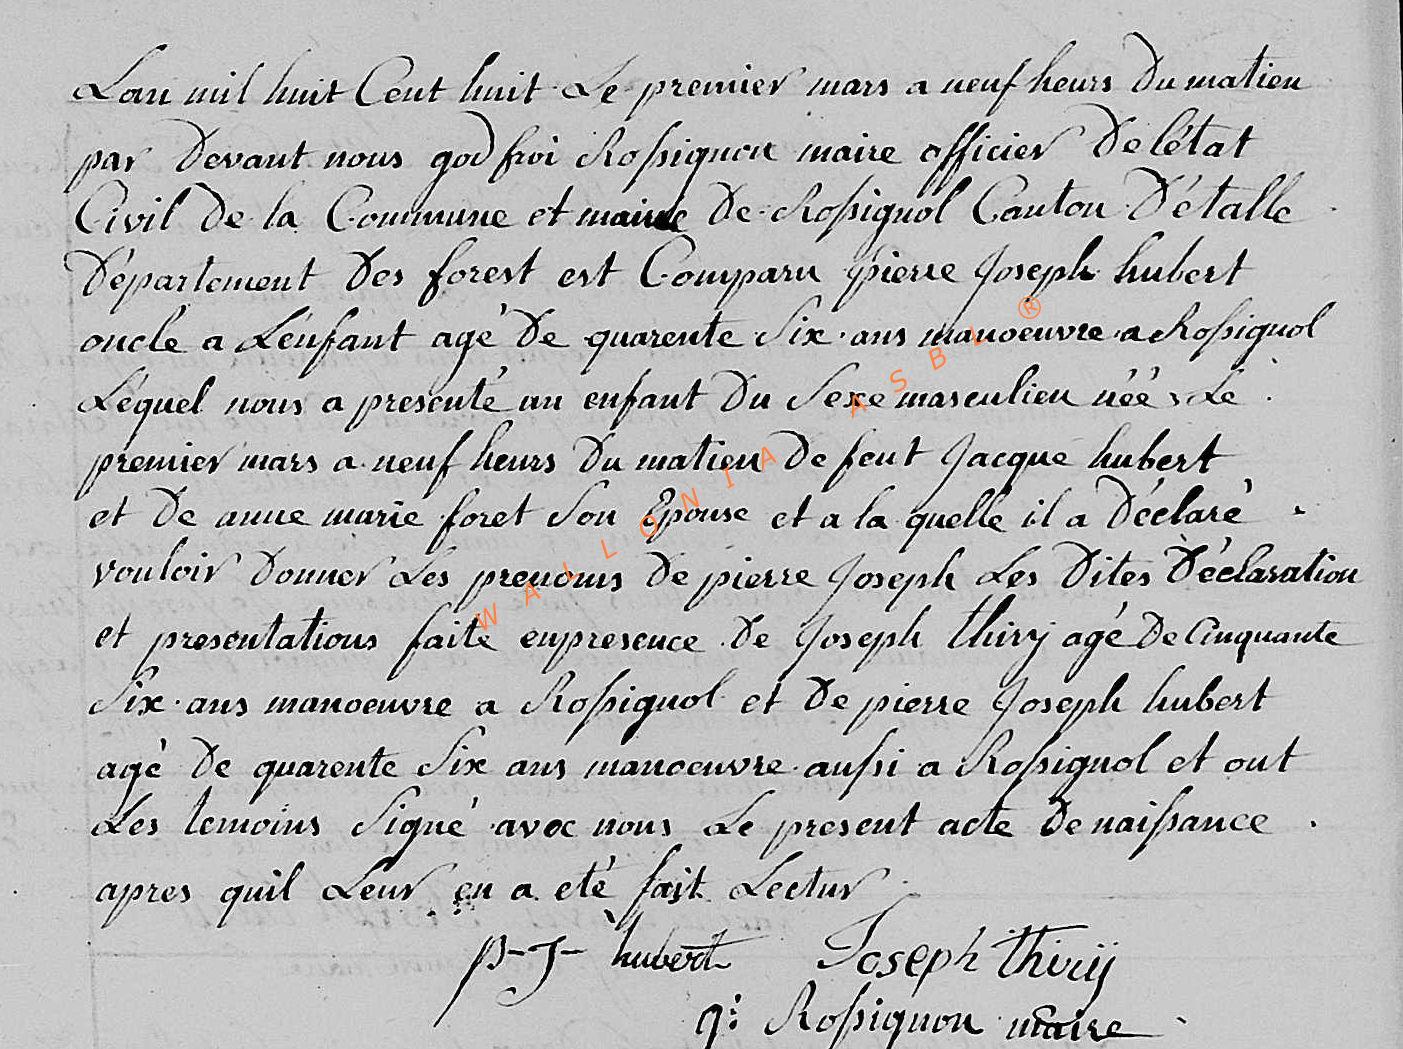 Lan mil huit Cent huit Le premier mars a neuf heurs Du matien
par Devant nous godfroi Rossignon maire officier De létat
Civil De la Commune et mairie De Rossignol Canton D'étalle
Département Des forest est Comparu pierre Joseph hubert
oncle a Lénfant agé De quarente Six ans manoeuvre a Rossignol
Léquel nous a presenté un enfant Du Sexe masculien néé Le
premier mars a neuf heurs Du matien De feut Jacque hubert
et De anne marie foret Son Epouse et a la quelle il a Déclaré
vouloir Donner Les prenoms De pierre Joseph Les Dites Déclaration
et presentations faite enpresence De Joseph thiry agé De Cinquante
Six ans manoeuvre a Rossignol et De pierre Joseph hubert
agé De quarente Six ans manoeuvre aussi a Rossignol et ont
Les temoins Signé avec nous Le present acte De naissance
apres quil Leur en a eté fait Lectur
p-J- hubert Joseph thirij
g: Rossignon maire
WALLONIA ASBL ®